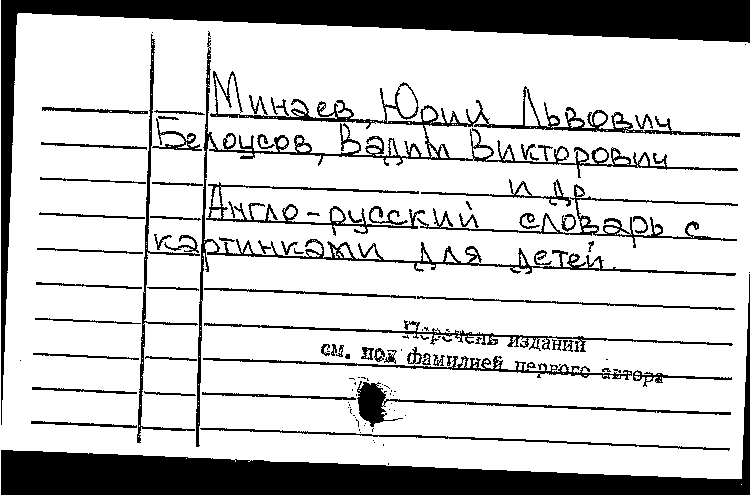 Минаев, Юрий Львович
Белоусов, Вадим Викторович
и др
Англо-русский словарь с
картинками для детей.
Перечень изданий
см. под фамилией первого автора